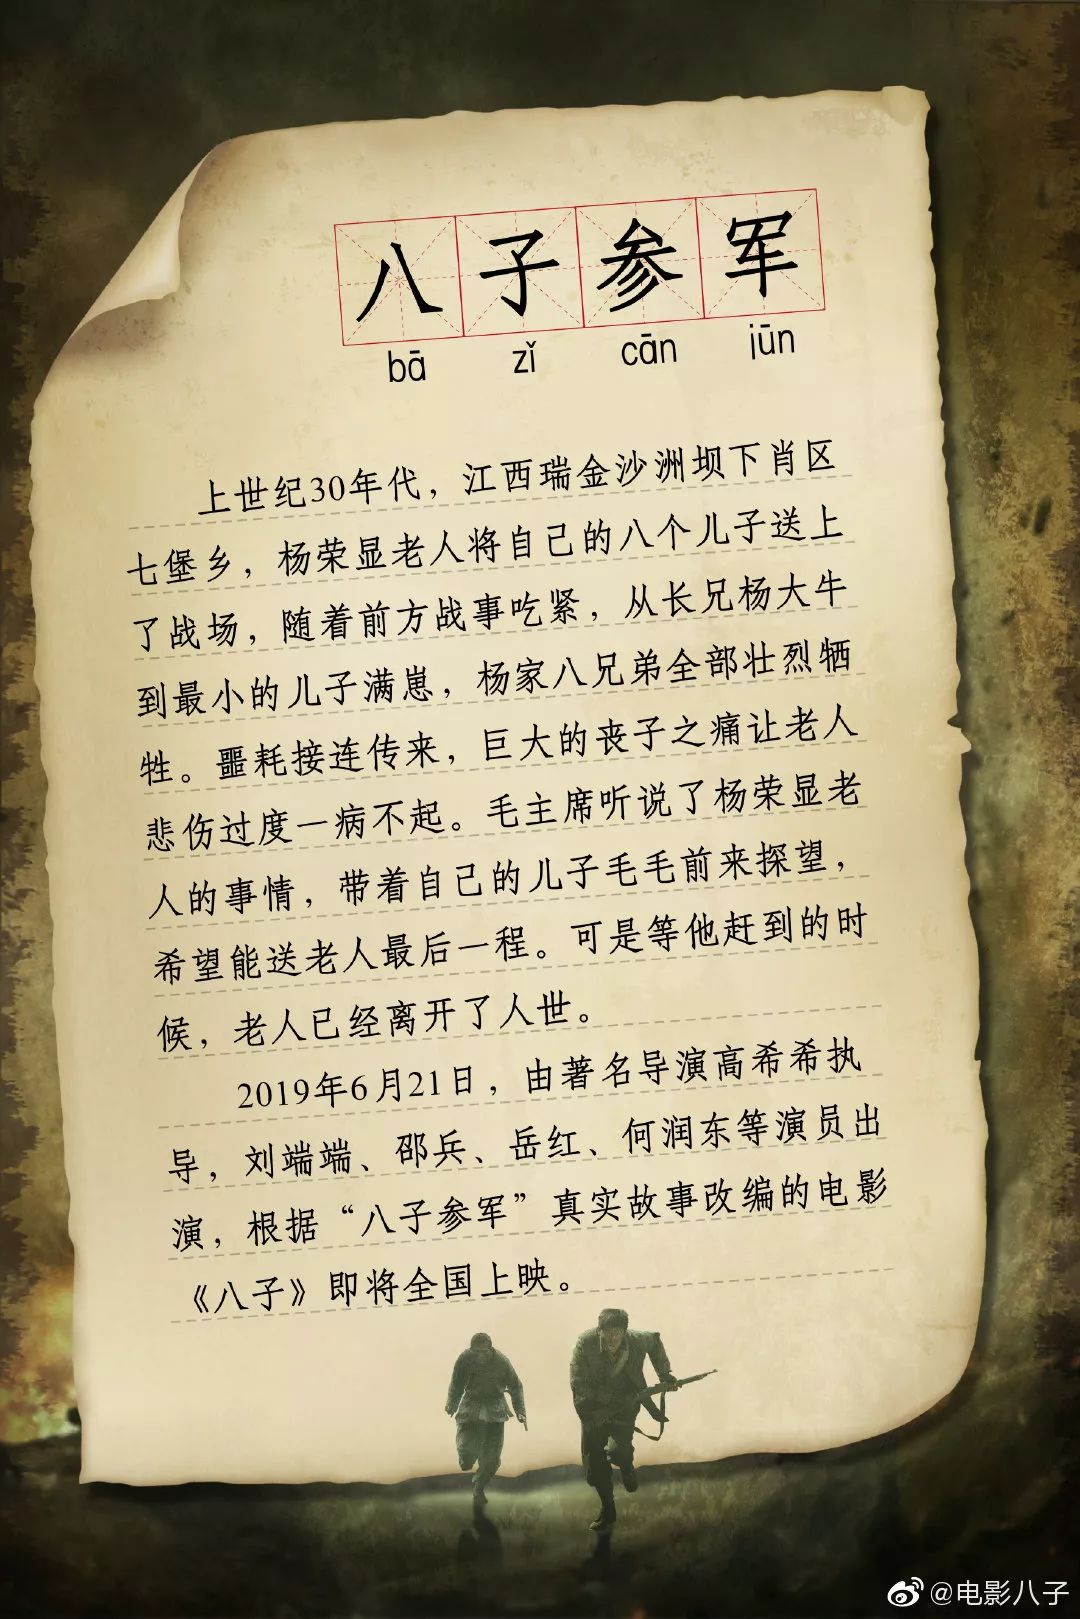 八子参军
bā zǐ cān jūn
上世纪30年代，江西瑞金沙洲坝下肖区
七堡乡，杨荣显老人将自己的八个儿子送上
了战场，随着前方战事吃紧，从长兄杨大牛
到最小的儿子满崽，杨家八兄弟全部壮烈牺
牲。噩耗接连传来，巨大的丧子之痛让老人
悲伤过度一病不起。毛主席听说了杨荣显老
人的事情，带着自己的儿子毛毛前来探望，
希望能送老人最后一程。可是等他赶到的时
候，老人已经离开了人世。
2019年6月21日，由著名导演高希希执
导，刘端端、邵兵、岳红、何润东等演员出
演，根据“八子参军”真实故事改编的电影
《八子》即将全国上映。
@电影八子